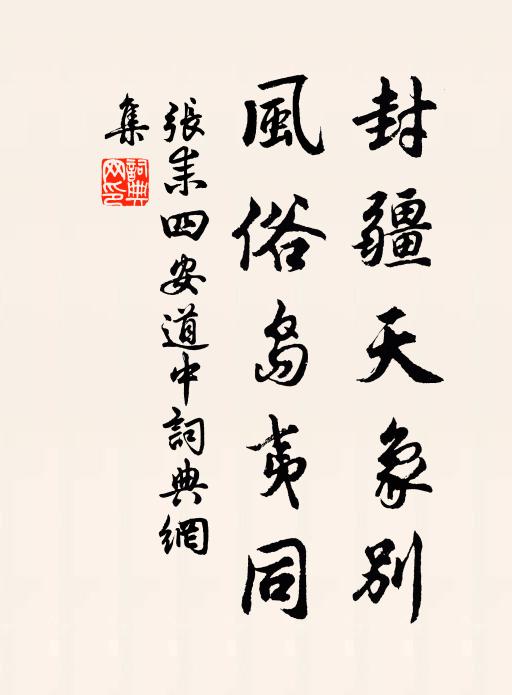 封疆天象别
風俗島夷同
張耒四安道中詞典網
集
詞典
网印